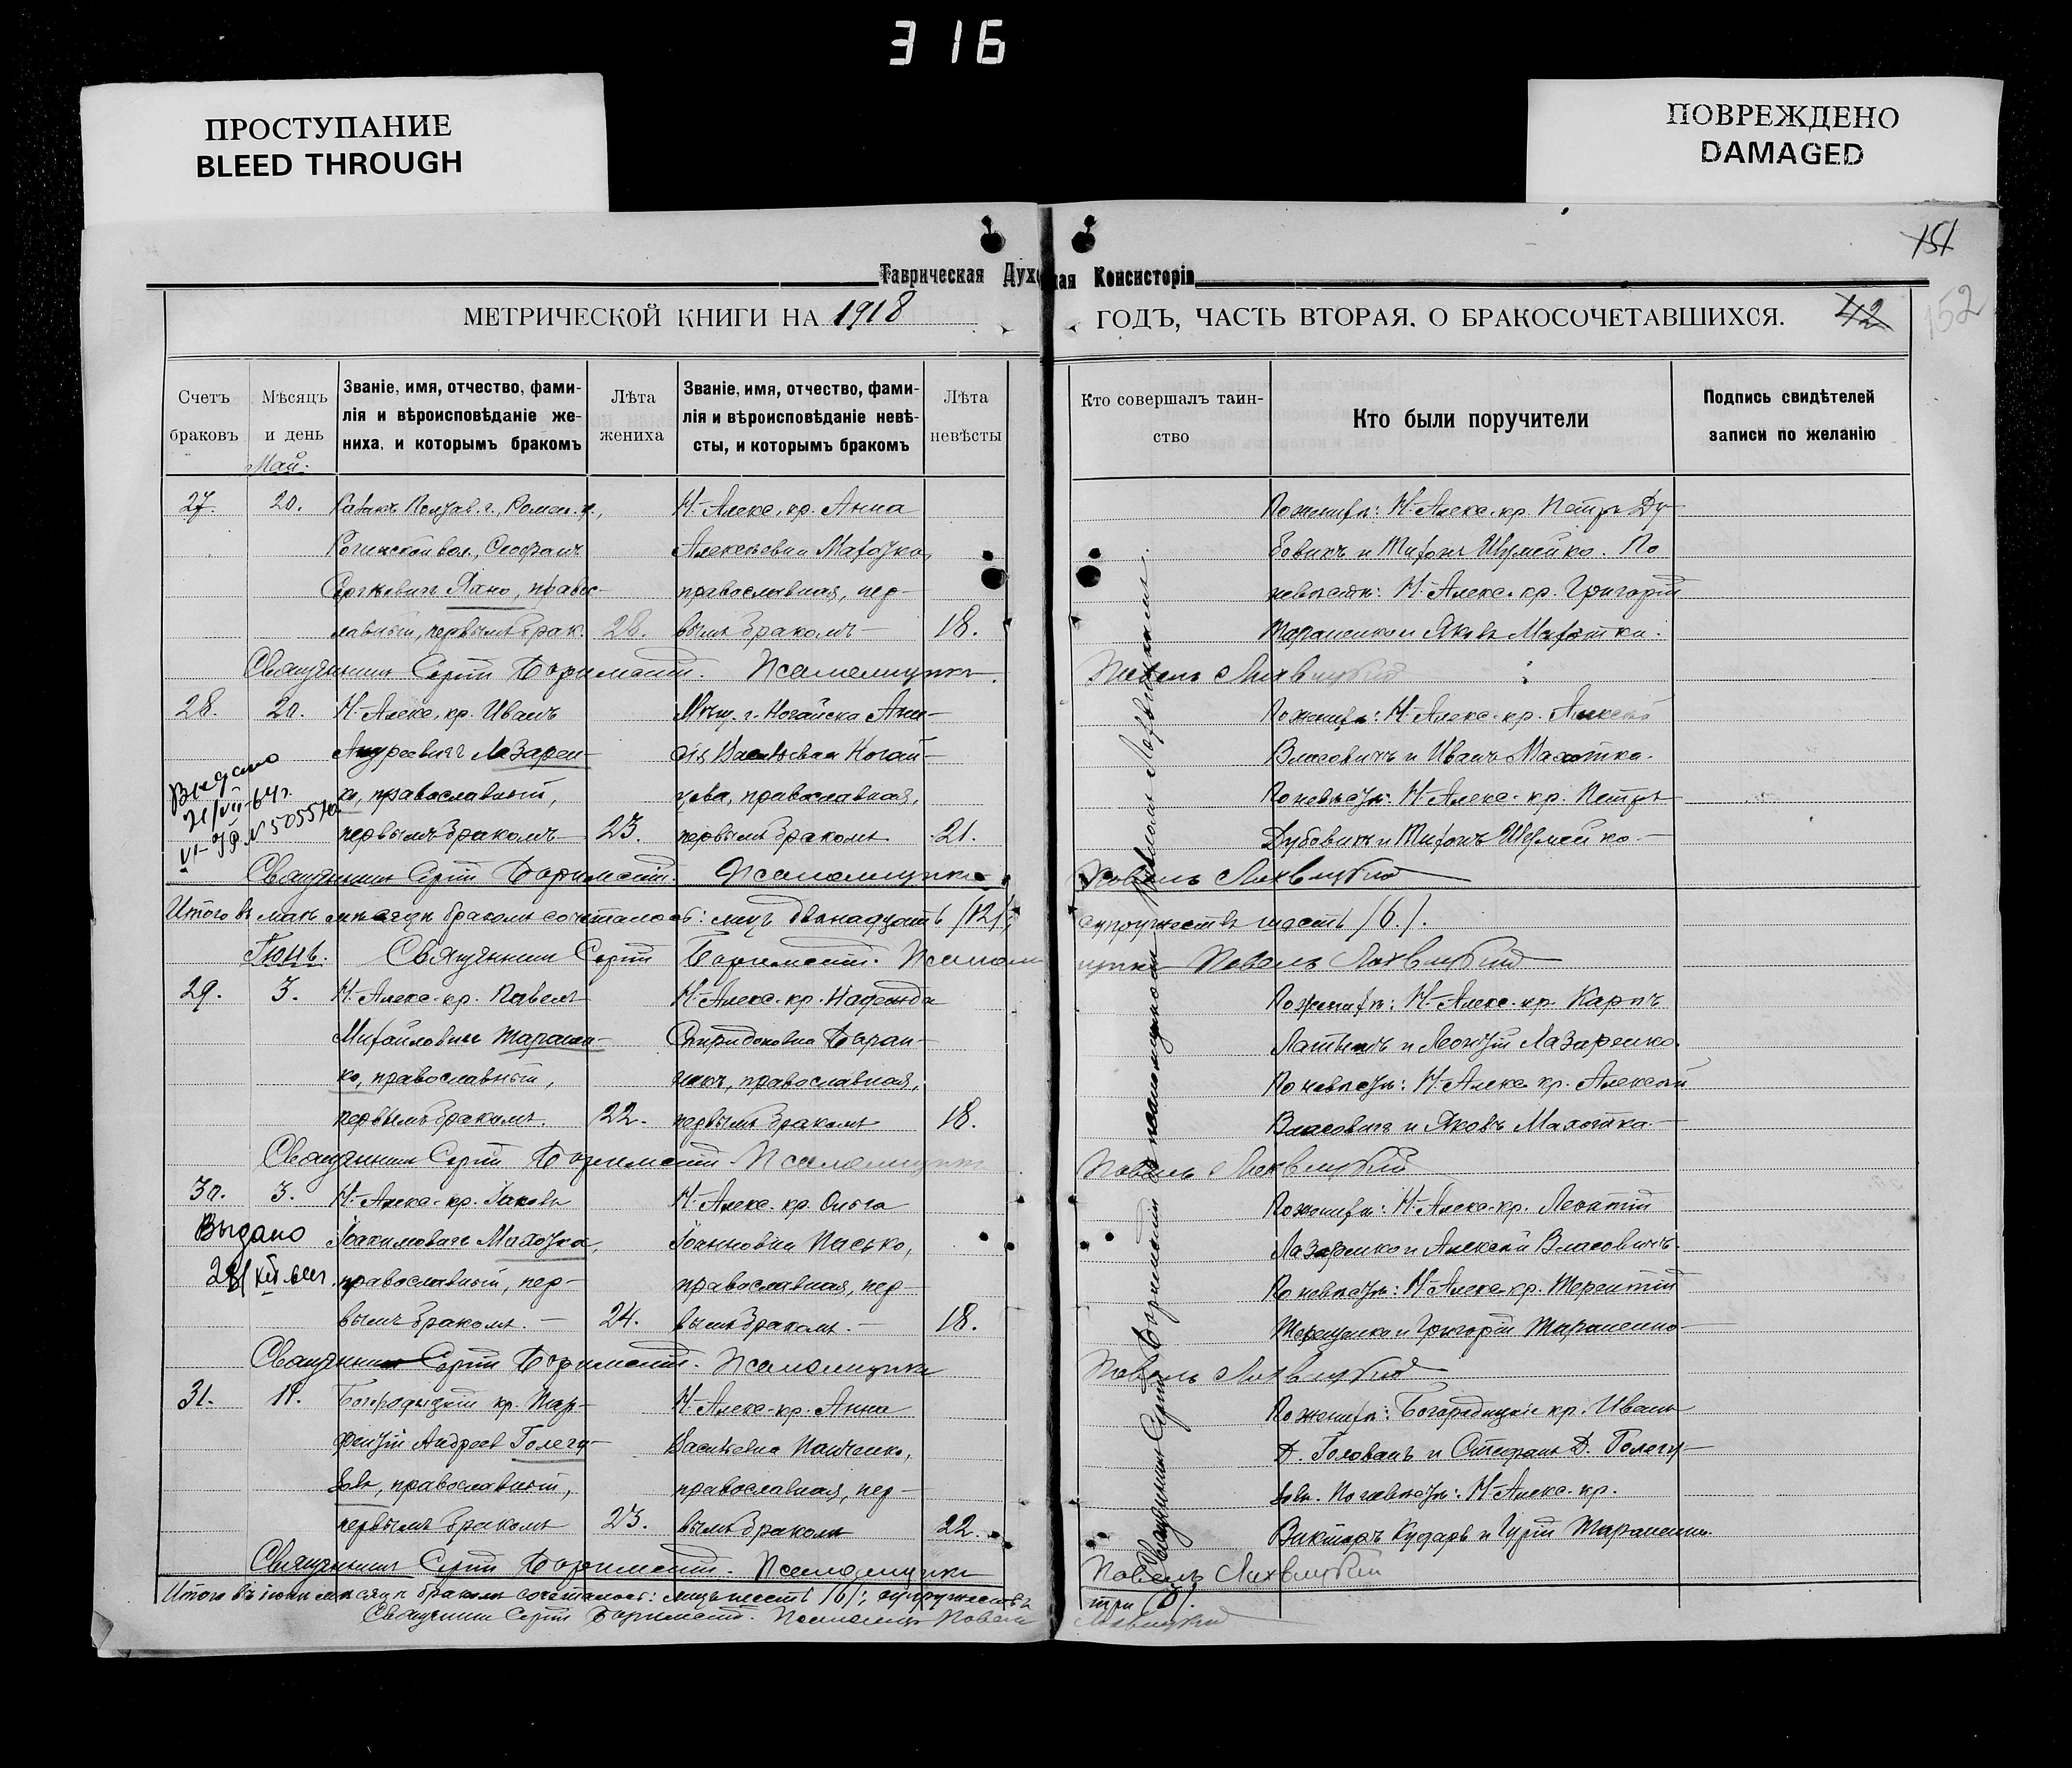 316
ПРОСТУПАНИЕ
BLEED THROUGH
ПОВРЕЖДЕНО
DAMAGED
151
152
Таврическая Духовная Консисторія
МЕТРИЧЕСКОЙ КНИГИ НА 1918
ГОДЪ, ЧАСТЬ ВТОРАЯ, О БРАКОСОЧЕТАВШИХСЯ.
42
Счетъ браковъ
Мѣсяцъ и день
Званіе, имя, отчество, фами-
лія и вѣроисповѣданіе же-
ниха, и которымъ бракомъ
Лѣта жениха
Званіе, имя, отчество, фами-
лія и вѣроисповѣданіе невѣ-
сты, и которымъ бракомъ
Лѣта невѣсты
Кто совершалъ таин-
ство
Кто были поручители
Подпись свидѣтелей
записи по желанію
Май.
27. 20.
Козакъ Полтав. г., Ромен. у.,
вол., Феофанъ
Сергѣевичъ Яхно, правос-
лавный, первымъ брак. 28.
Н-Алекс. кр. Анна
Алексѣевна Махотка,
православная, пер-
вымъ бракомъ 18.
По женихѣ: Н-Алекс. кр. Петръ Ду-
бовикъ и Тихонъ Шумейко. По
невѣстѣ: Н-Алекс. кр. Григорій
Тараненко и Яковъ Махотка.
Священникъ Сергій Псаломщикъ
Павелъ Лихвицкій
28. 20.
Н-Алекс. кр. Иванъ
Андреевичъ Лазарен-
ко, православный,
первымъ бракомъ 23.
Мѣщ. г. Ногайска
Васильевна Ногай-
цева, православная,
первымъ бракомъ 21.
По женихѣ: Н-Алекс. кр. Алексѣй
Власовичъ и Иванъ Махотка.
По невѣстѣ: Н-Алекс. кр. Петръ
Дубовикъ и Тихонъ Шумейко.
Выдано
21/VII-64 г.
VI-ЯР № 505570
Священникъ Сергій Псаломщикъ
Павелъ Лихвицкій
Итого въ маѣ мѣсяцѣ бракомъ сочеталось: лицъ двѣнадцать /12/;
супружествъ шесть /6/.
Іюнь. Священникъ Сергій Псалом
щикъ Павелъ Лихвицкій
29. 3.
Н-Алекс. кр. Павелъ
Михайловичъ Таранен-
ко, православный,
первымъ бракомъ. 22.
Н-Алекс. кр. Надежда
Спиридоновна Баран-
никъ, православная,
первымъ бракомъ 18.
По женихѣ: Н-Алекс. кр. Карпъ
и Леонтій Лазаренко.
По невѣстѣ: Н-Алекс. кр. Алексѣй
Власовичъ и Яковъ Махотка.
Священникъ Сергій Псаломщикъ
Павелъ Лихвицкій
30. 3.
Н-Алекс. кр. Іаковъ
Іоакимовичъ Махотка,
православный, пер-
вымъ бракомъ. 24.
Н-Алекс. кр. Ольга
Іоанновна Пасько,
православная, пер-
вымъ бракомъ. 18.
По женихѣ: Н-Алекс. кр. Леонтій
Лазаренко и Алексѣй Власовичъ.
По невѣстѣ: Н-Алекс. кр. Терентій
Терещенко и Григорій Тараненко
Выдано
Священникъ Сергій Псаломщикъ
Павелъ Лихвицкій
31.
Богородицкій кр. Пар-
фентій Андреев Голегу-
зовъ, православный,
первымъ бракомъ 23.
Н-Алекс. кр. Анна
Васильевна Панченко,
православная, пер-
вымъ бракомъ 22.
По женихѣ: Богородицкіе кр. Иванъ
Д. Голованъ и Стефанъ Д. Голегу-
зовъ. По невѣстѣ: Н-Алекс. кр.
Викторъ и Гурій Тараненко.
Священникъ Сергій Псаломщикъ
Павелъ Лихвицкій
Итого въ іюнѣ мѣсяцѣ бракомъ сочеталось: лицъ шесть /6/; супружествъ
три /3/.
Священникъ Сергій Псаломщикъ Павелъ
Лихвицкій